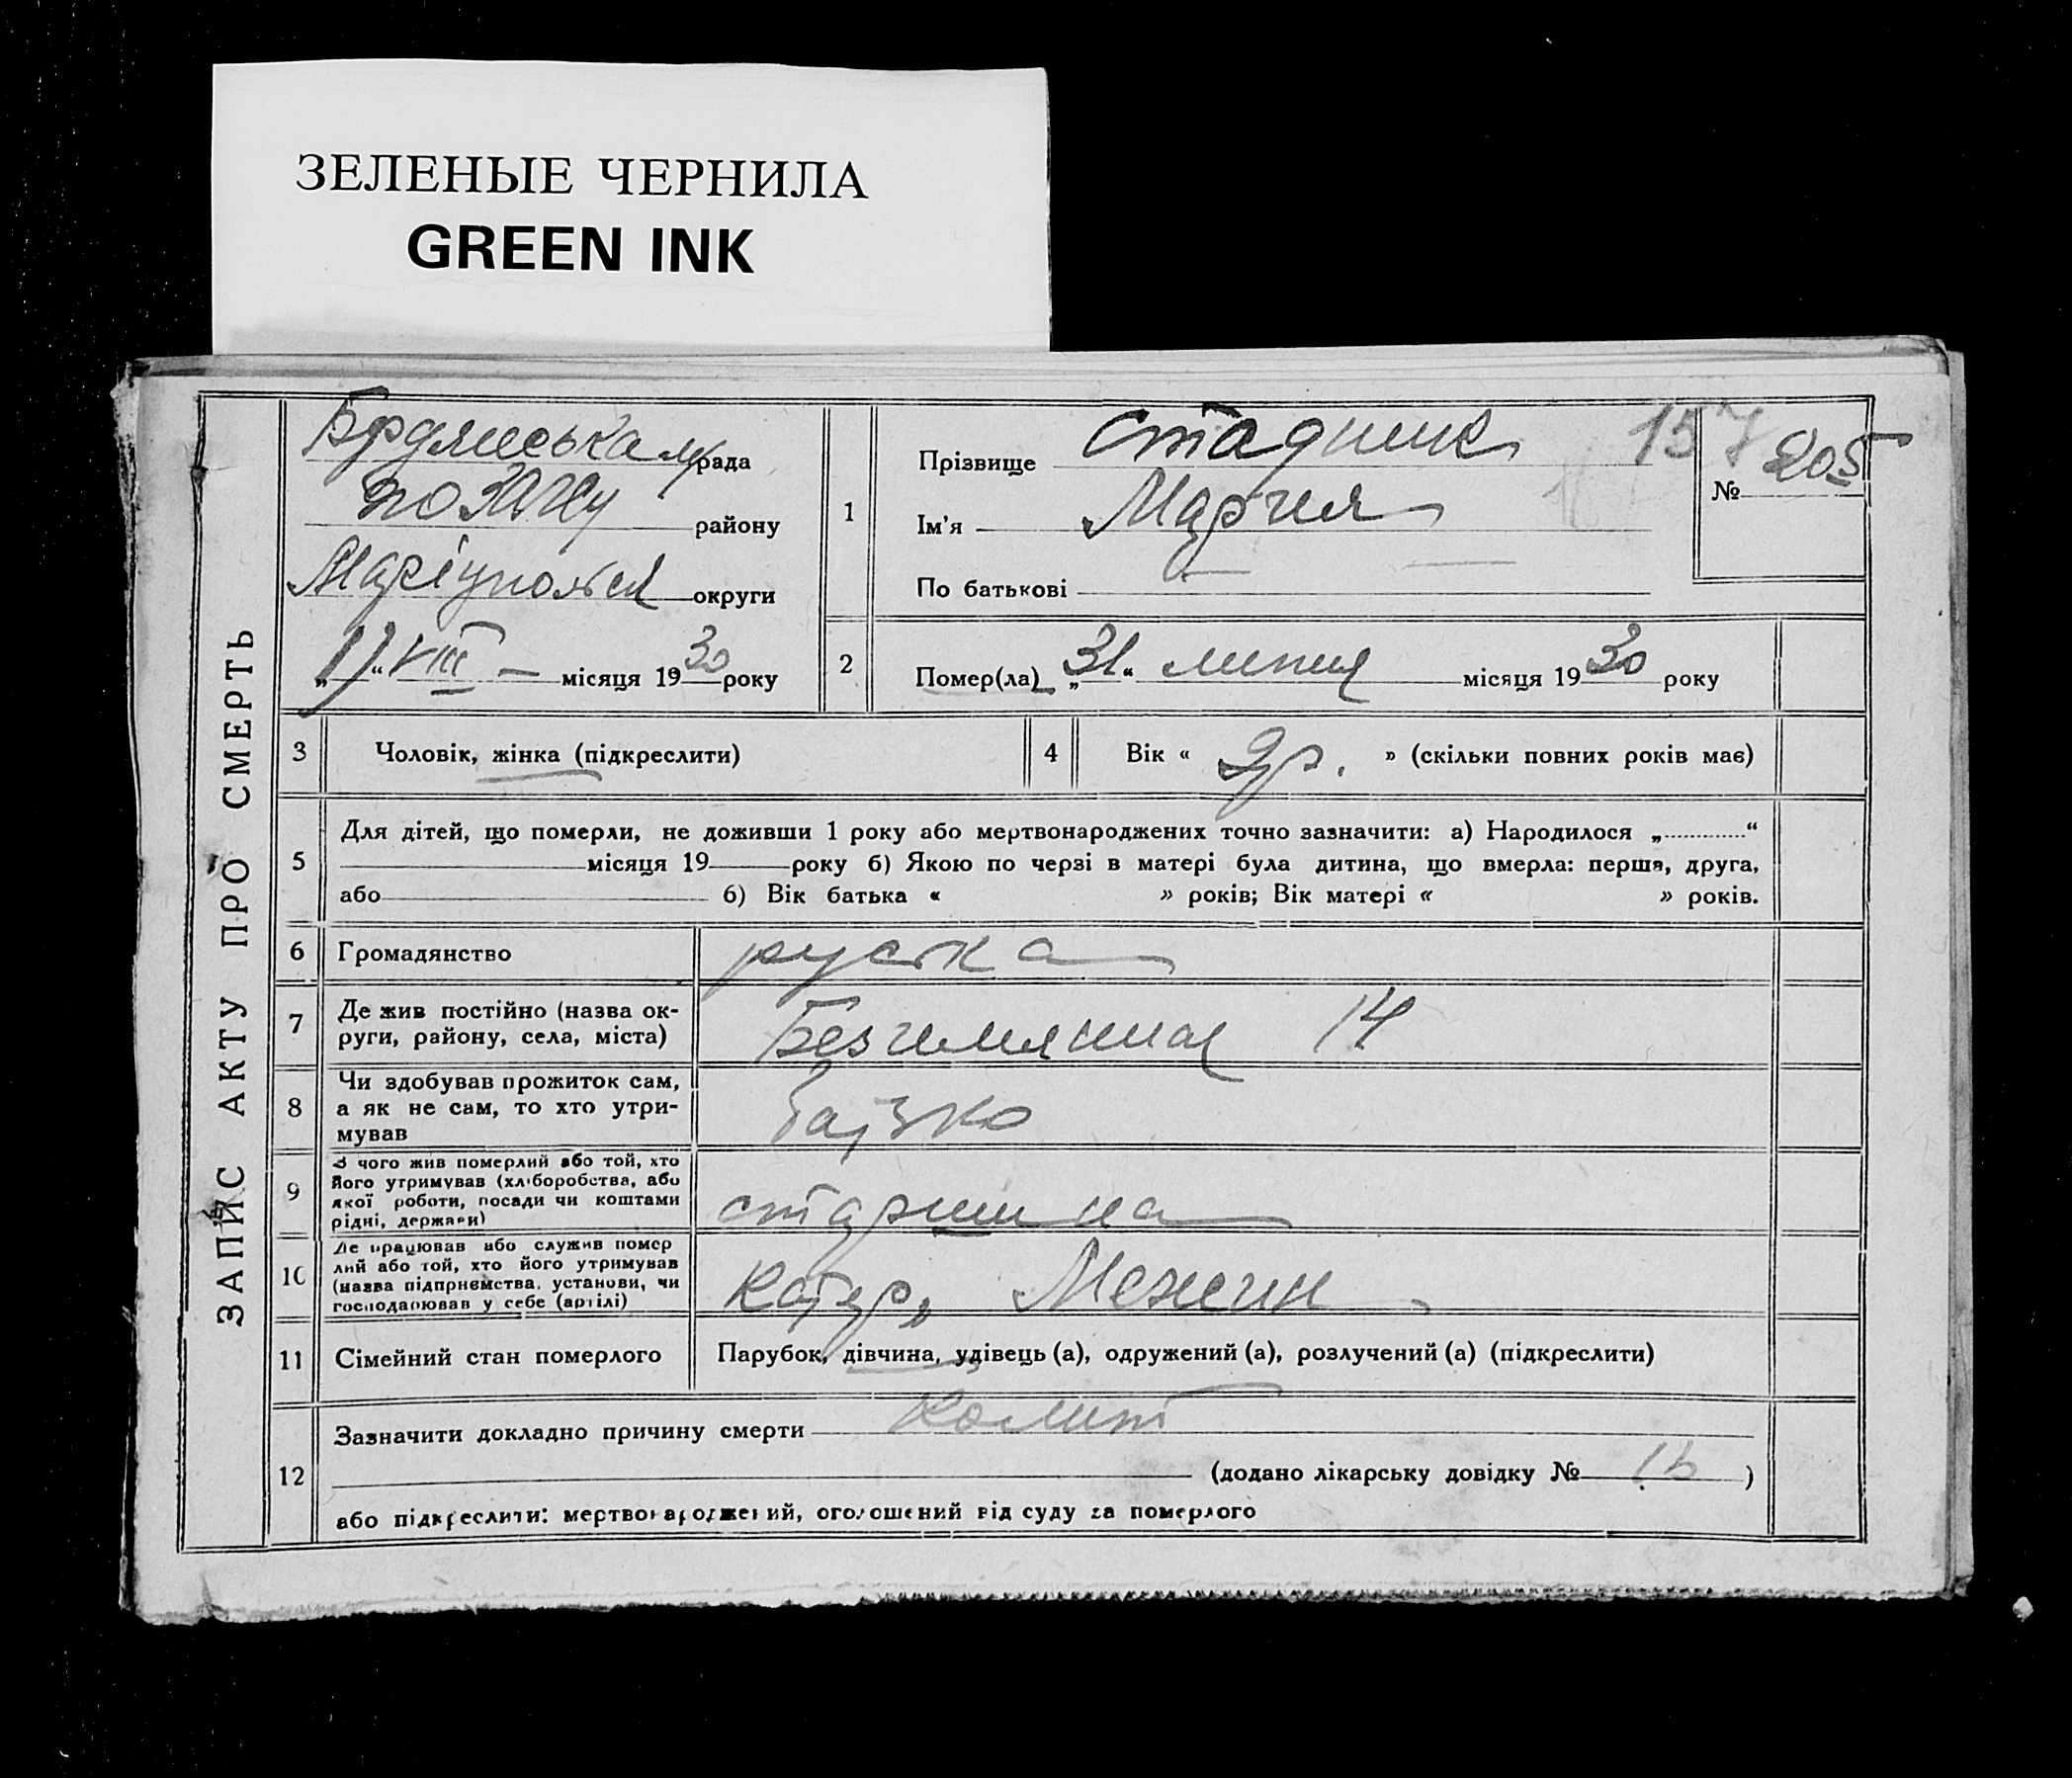 ЗЕЛЕНЫЕ ЧЕРНИЛА
GREEN INK
ЗАПИС АКТУ ПРО СМЕРТЬ
Брдянська м/рада
по ЗАГСу району
Маріупольск округи
„ “ VIII місяця 1930 року
1
Прізвище Стадник 157
Ім’я Мария
По батькові —
№ 205
2
Помер(ла) „31“ липня місяця 1930 року
3 Чоловік, жінка (підкреслити)
4 Вік « 2 р. » (скільки повних років має)
5
Для дітей, що померли, не доживши 1 року або мертвонароджених точно зазначити: а) Народилося „ “
місяця 19 року б) Якою по черзі в матері була дитина, що вмерла: перша, друга,
або б) Вік батька « » років; Вік матері « » років.
6 Громадянство руська
7 Де жив постійно (назва ок-
руги, району, села, міста) Безимянная 14
8 Чи здобував прожиток сам,
а як не сам, то хто утри-
мував батько
9 З чого жив померлий або той, хто
його утримував (хліборобства, або
якої роботи, посади чи коштами
рідні, держави) старшина
10 Де працював або служив помер
лий або той, хто його утримував
(назва підприємства, установи, чи
господарював у себе (артілі) Катер,
11 Сімейний стан померлого Парубок, дівчина, удівець (а), одружений (а), розлучений (а) (підкреслити)
12
Зазначити докладно причину смерти Колит
(додано лікарську довідку № )
або підкреслити: мертвонароджений, оголошений від суду за померлого